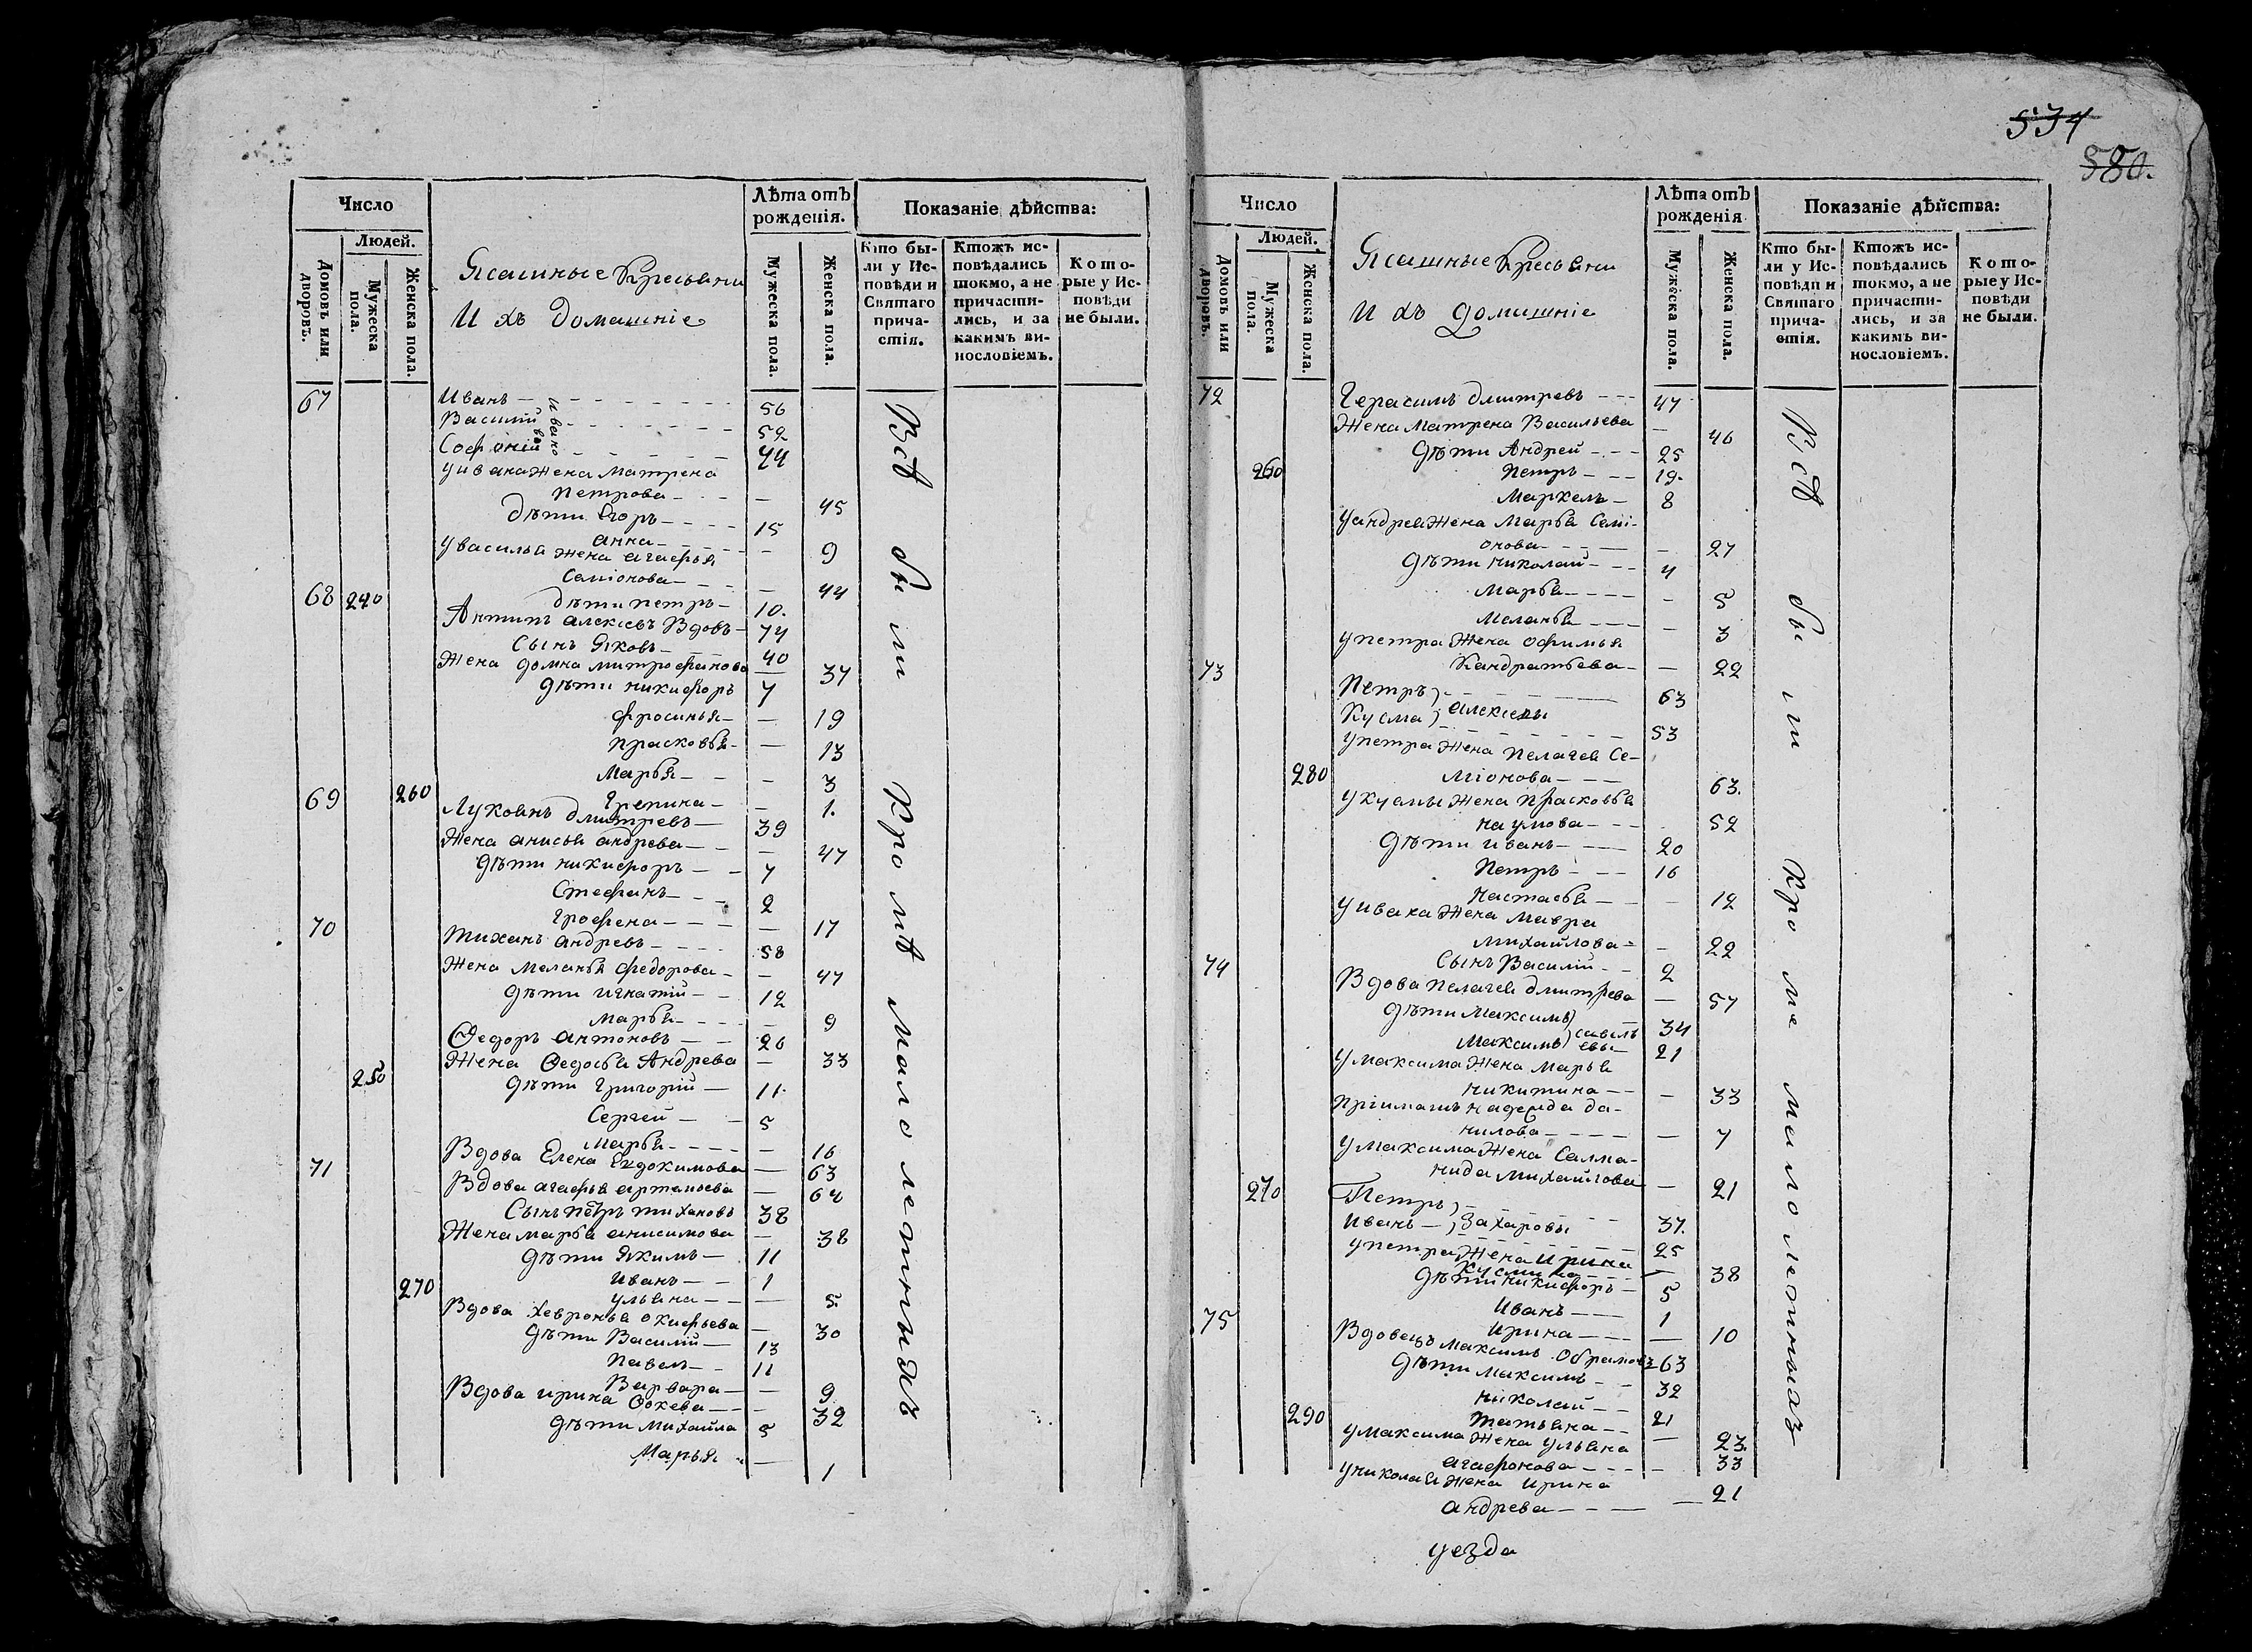 Число
Людей.
Домовъ или дворовъ.
Мужеска пола.
Женска пола.
Ясашные Кресьяни
И хъ домашніе
Лѣта отъ рожденія.
Мужеска пола.
Женска пола.
Показаніе дѣйства:
Кто были у Исповѣди и Святаго причастія.
Ктожъ исповѣдались токмо, а не причастились, и за какимъ винословіемъ.
Которые у Исповѣди не были.
67 Иванъ 56
Василій 52
Софоній 44
Ивановы
у ивана жена матрена
петрова 45
дѣти Егоръ 15
анна 9
у василья жена агафья
Семіонова 44
68 240 дѣти петръ 10.
Антипъ алексіевъ Вдовъ 74
Сынъ яковъ 40
жена домна митрофанова 37
дѣти никифоръ 7
фросинья 19
прасковья 13
марья 3
69 260 Грепина 1.
Лукоянъ дмитревъ 39
жена анисья андрева 47
дѣти никифоръ 7
Стефанъ 2
Грофена 17
70 тиханъ андревъ 58
жена меланья федорова 47
дѣти игнатій 12
марья 9
Ѳедоръ антоновъ 26
жена Ѳедосья Андрева 33
250 дѣти григорій 11
Сергей 5
марья 16
Вдова Елена Евдокимова 63
71 Вдова агафья артемьева 64
Сынъ петръ тихановъ 38
жена марья анисимова 38
дѣти якимъ 11
Иванъ 1
270 ульяна 5.
Вдова хевронья окифьева 30
дѣти Василій 13
павелъ 11
Варвара 9
Вдова ирина Ѳокева 32
дѣти михайла 5
Марья 1
Всѣ были кромѣ малолетныхъ
534
580.
Число
Людей.
Домовъ или дворовъ.
Мужеска пола.
Женска пола.
Ясашные Кресьяни
И хъ домашніе
Лѣта отъ рожденія
Мужеска пола.
Женска пола.
Показаніе дѣйства:
Кто были у Исповѣди и Святаго причастія.
Ктожъ исповѣдались токмо, а не причастились, и за какимъ винословіемъ.
Которые у Исповѣди не были.
72 Герасимъ дмитревъ 47
жена матрена Васильева 46
дѣти Андрей 25
260 петръ 19.
маркелъ 8
у андрея жена марья Семі-
онова 27
дѣти николай 4
марья 5
меланья 3
у петра жена офимья
Кандратьева 22
73 Петръ 63
Кусма 53
алексіевы
у петра жена пелагея Се-
280 міонова 63.
у кусмы жена прасковья
наумова 52
дѣти иванъ 20
петръ 16
настасья 12
у ивана жена мавра
михайлова 22
Сынъ Василій 2
74 Вдова пелагея дмитрева 57
дѣти максимъ 34
максимъ 21
савельевы
у максима жена марья
никитина 33
пріимашъ надежда да-
нилова 7
у максима жена Салма-
нида михайлова 21
270 Петръ 37.
Иванъ 25
Захаровы
у петра жена Ирина
Кусмина 38
дѣти никифоръ 5
Иванъ 1
75 ирина 10
Вдовецъ максимъ Обрамовъ 63
дѣти максимъ 32
николай 21
290 татьяна 23.
у максима жена ульяна
агафонова 33
у николая жена ирина
андрева 21
уезда
Всѣ были кроме малолетныхъ